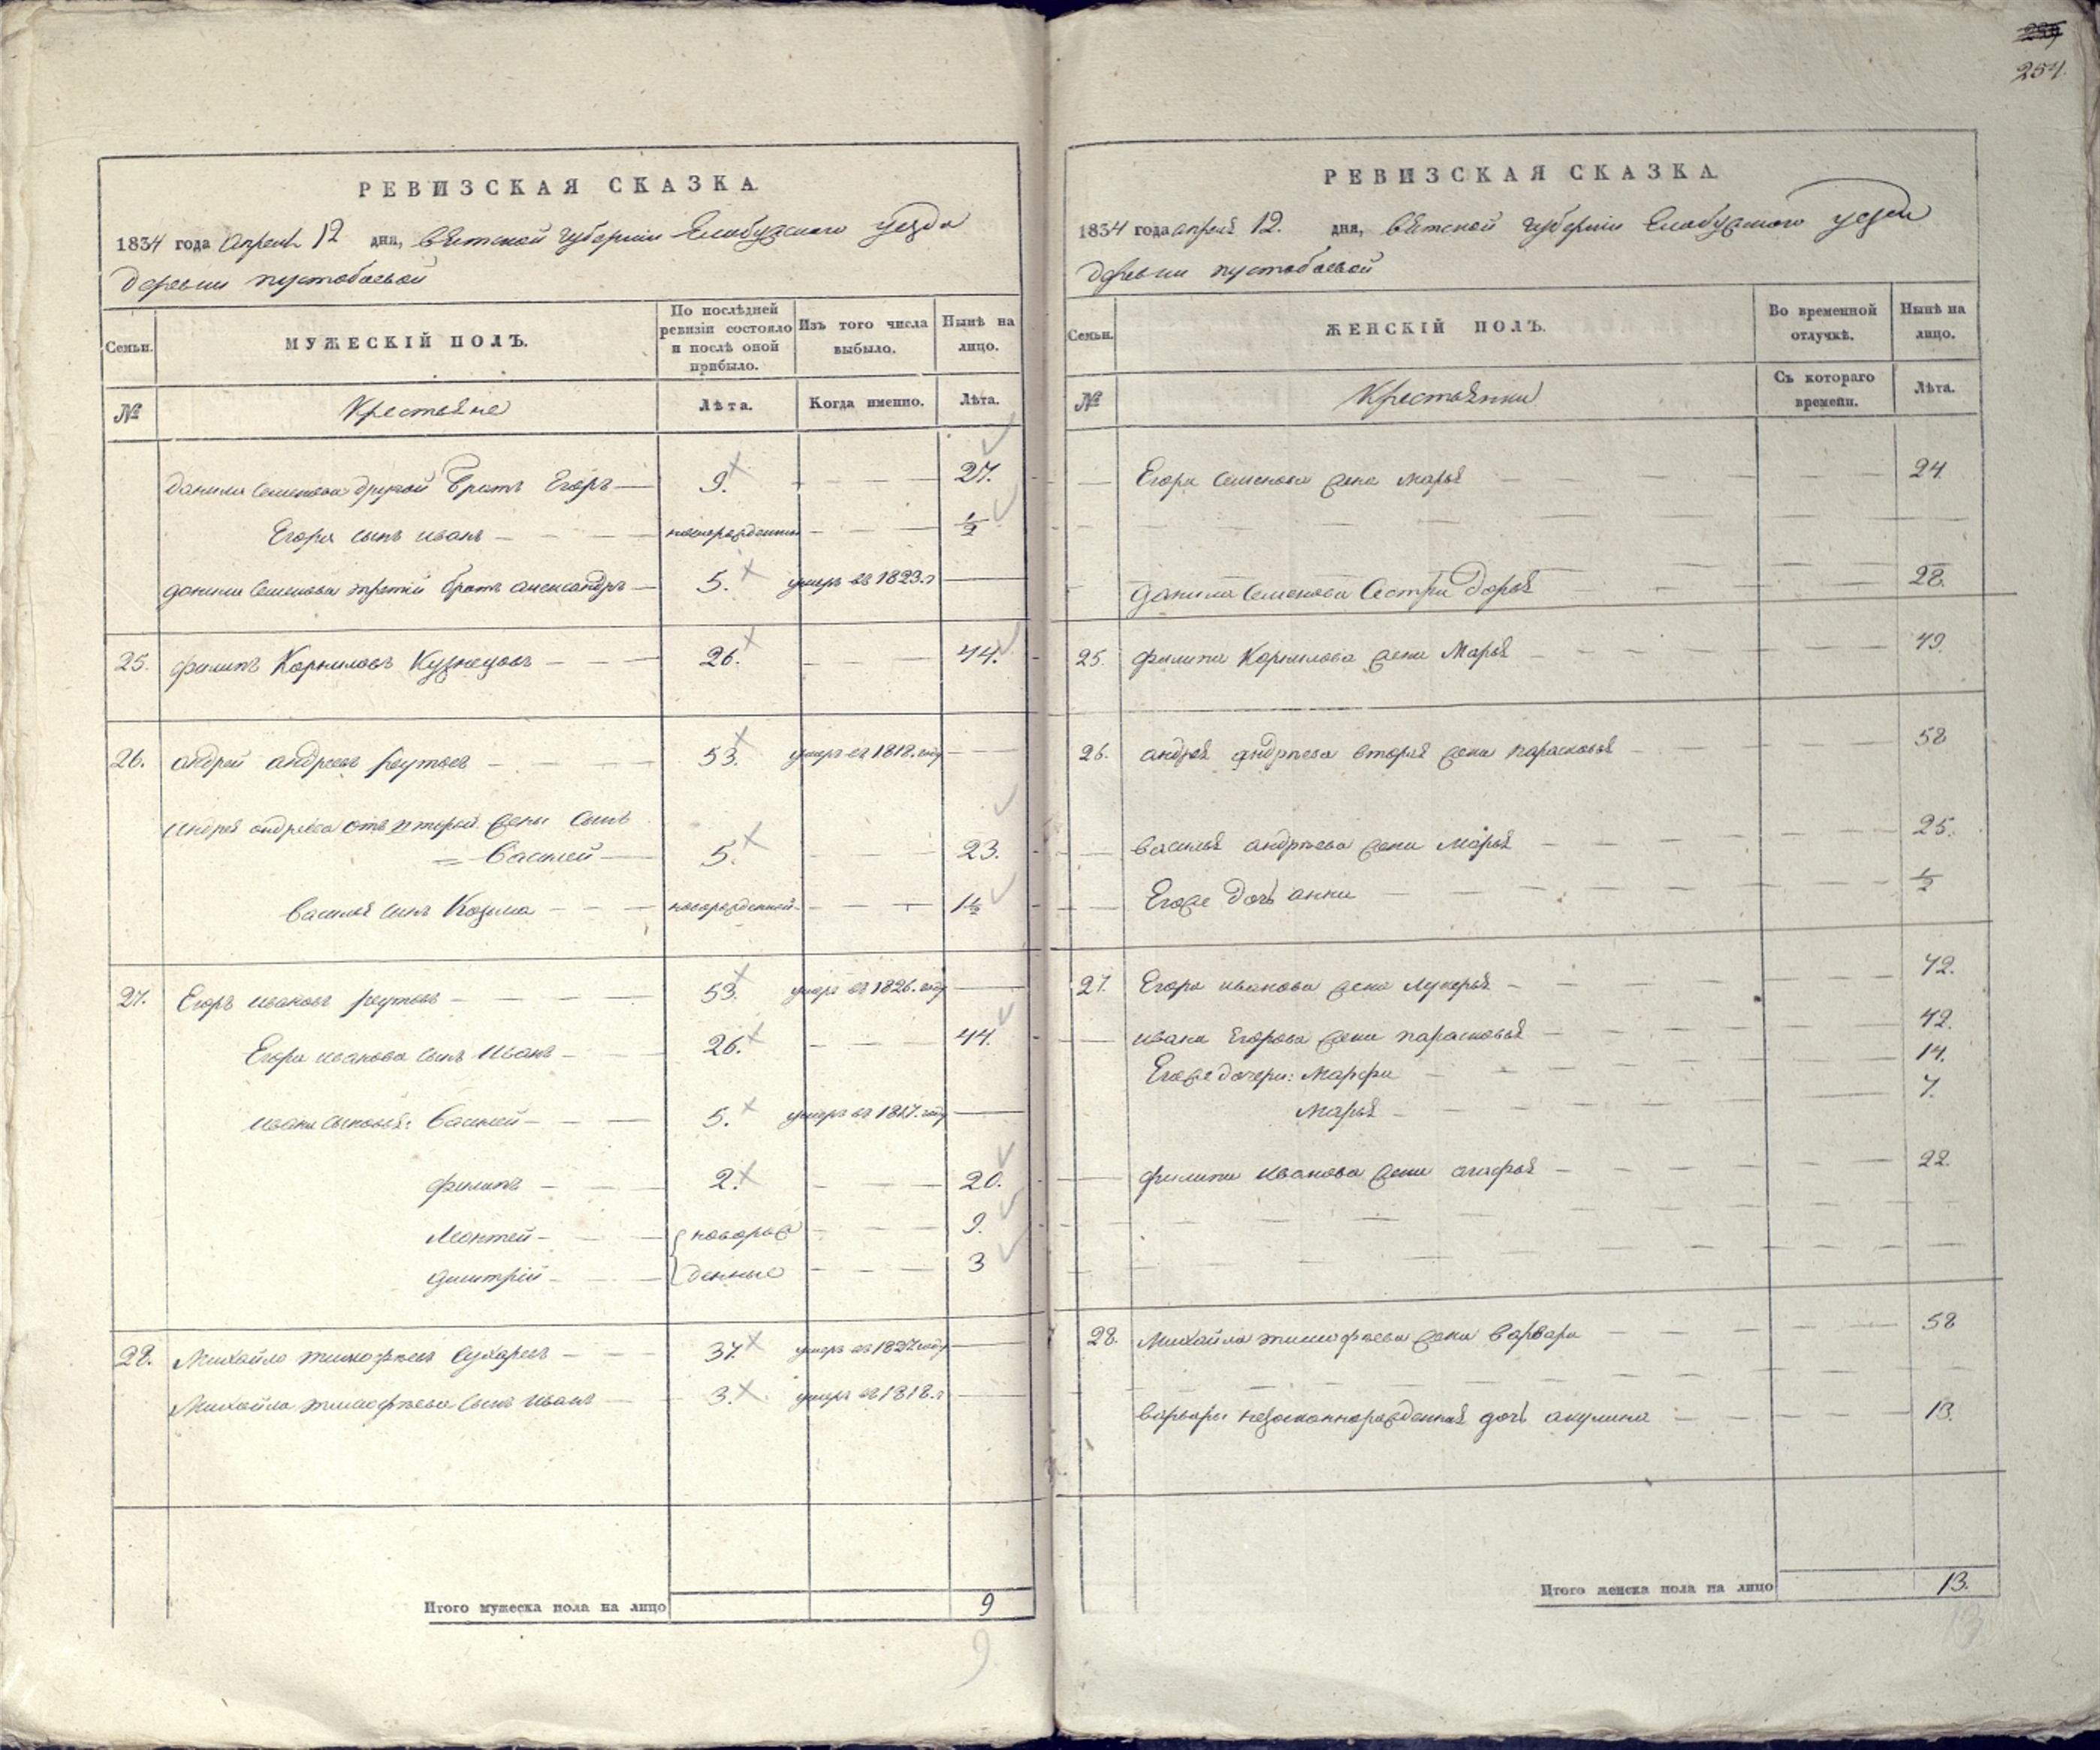 254.
РЕВИЗСКАЯ СКАЗКА.
1834 года апреля 12 дня, Вятской губернии Елабужского уезда
деревни пустобаевой
Семьи. МУЖЕСКІЙ ПОЛЪ. По послѣдней ревизіи состояло и послѣ оной прибыло. Изъ того числа выбыло. Нынѣ на лицо.
№ Крестьяне Лѣта. Когда именно. Лѣта.
данила Семенова другой братъ Егоръ 9. 27.
Егора сынъ иванъ новорожденный 1/2
данила Семенова третій братъ александръ 5. умеръ въ 1823.г
25. филипъ Корниловъ Кузнецовъ 26. 44.
26. андрей андреевъ реутовъ 53. умеръ въ 1818. году
андрея андреева отъ второй жены сынъ
= Василей 5. 23.
Василья сынъ Козьма новорожденной 1 1/2
27. Егоръ ивановъ реутовъ 53. умеръ въ 1826. году
Егора иванова сынъ Иванъ 26. 44.
ивана сыновья: Василей 5. умеръ въ 1817. году
филипъ 2. 20.
Леонтей новорож 9.
дмитрій денные 3
28. Михайло тимофѣевъ Сухаревъ 37. умеръ въ 1827 году
Михайла тимофѣева сынъ иванъ 3. умеръ въ 1818.г
Итого мужеска пола на лицо 9
9
РЕВИЗСКАЯ СКАЗКА.
1834 года апреля 12. дня, Вятской губернии Елабужского уезда
деревни пустобаевой
Семьи. ЖЕНСКІЙ ПОЛЪ. Во временной отлучкѣ. Нынѣ на лицо.
№ Крестьянки Съ котораго времени. Лѣта.
Егора Семенова жена марья 24.
данила Семенова Сестра дарья 28.
25. филипа Корнилова жена Марья 49.
26. андрея андрѣева вторая жена парасковья 58
Василья андрѣева жена Марья 25.
Егоже дочь анна 1/2
27. Егора иванова жена лукерья 72.
ивана Егорова жена парасковья 42.
Егоже дочери: марфа 14.
марья 7.
филипа иванова жена агафья 22.
28. Михайла тимофѣева жена варвара 58
варвары незаконнорожденная дочь акулина 13.
Итого женска пола на лицо 13.
13